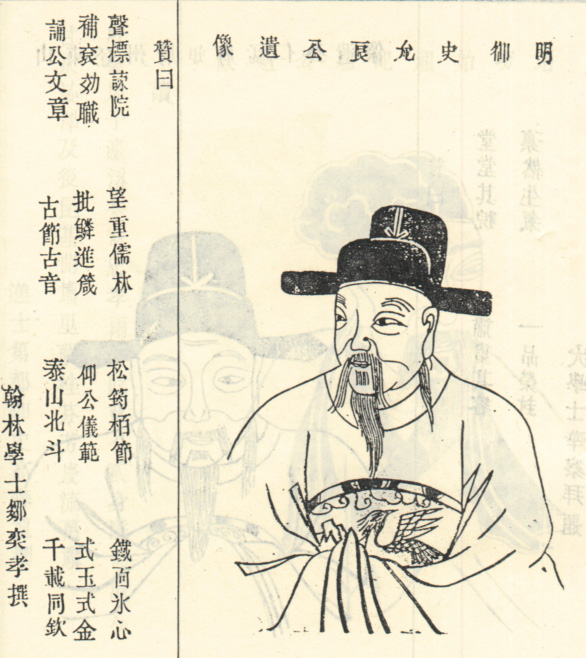 明御史允良公遺像
贊曰
聲標諫院 望重儒林 松筠栢節 鐵靣氷心
補衮効職 批鱗進箴 仰公儀範 式玉式金
誦公文章 古節古音 泰山北斗 千載同欽
翰林學士鄒奕孝撰